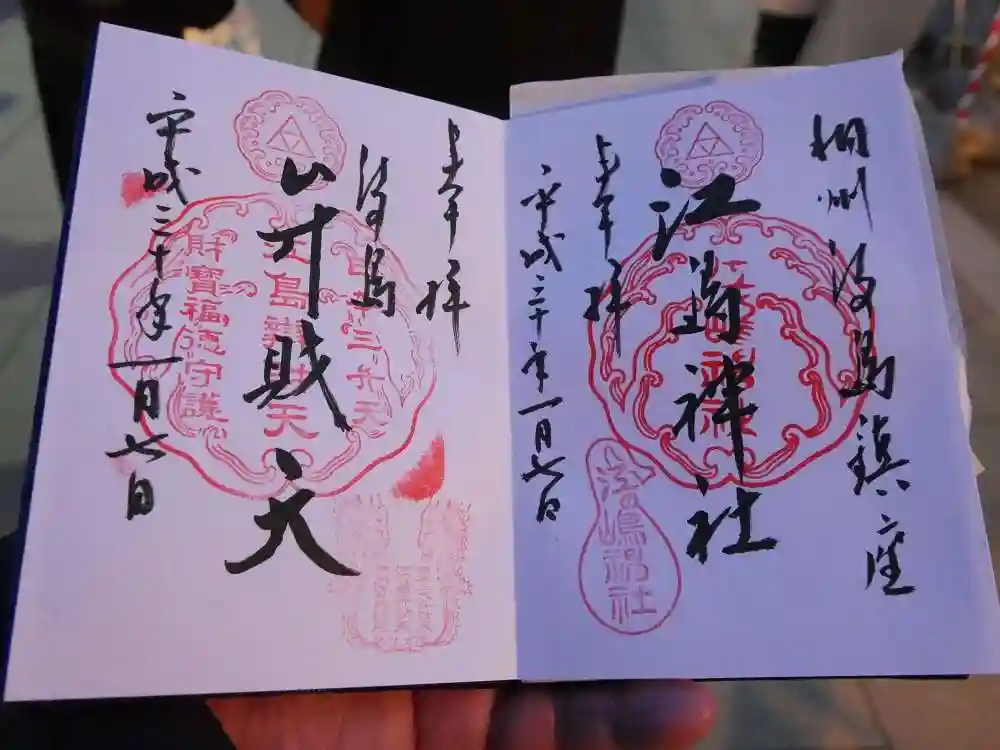 相州江島鎮座
江島神社
奉拝
平成三十年一月七日
江嶋神社
奉拝
江島
弁財天
江島辨財天
財寶福徳守護
平成三十年一月七日